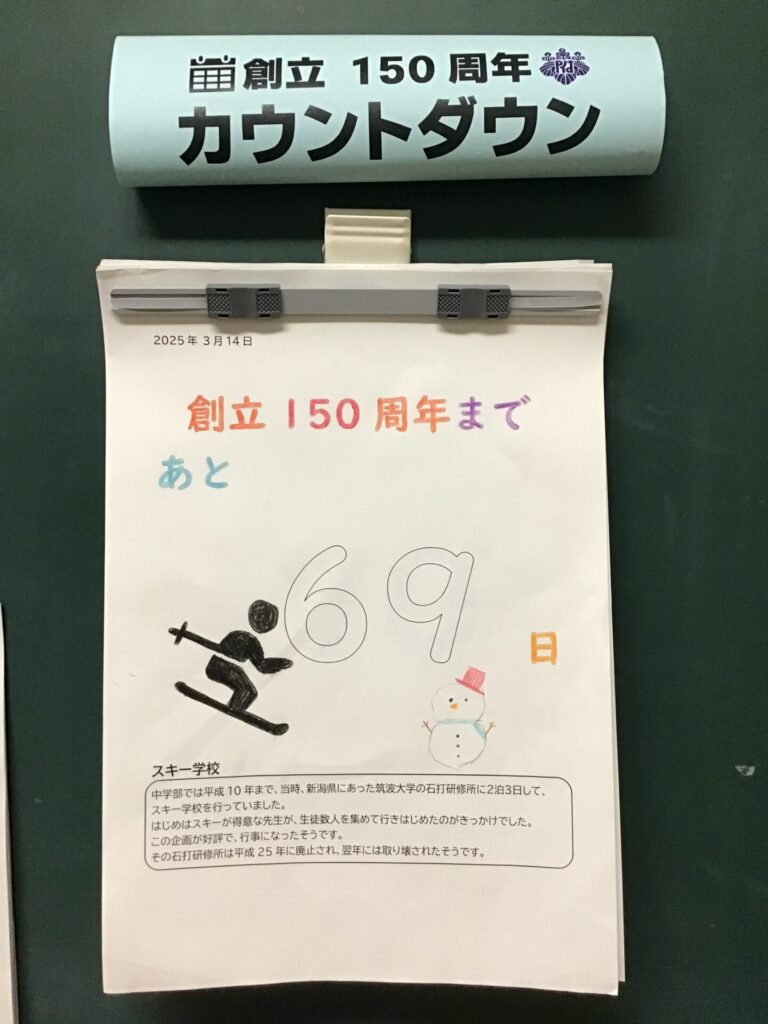 創立 150 周年
カウントダウン
2025年 3月14日
創立 150 周年まで
あと
69
日
スキー学校
中学部では平成 10 年まで、当時、新潟県にあった筑波大学の石打研修所に2泊3日して、
スキー学校を行っていました。
はじめはスキーが得意な先生が、生徒数人を集めて行きはじめたのがきっかけでした。
この企画が好評で、行事になったそうです。
その石打研修所は平成 25 年に廃止され、翌年には取り壊されたそうです。